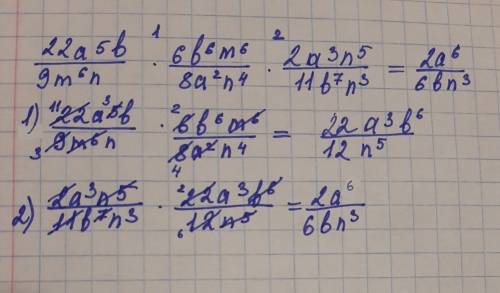 22a⁵b/9m⁶n ·¹ 6b⁶m⁶/8a²n⁴ ·² 2a³n⁵/11b⁷n³ = 2a⁶/6bn³
1) 22a⁵b/9m⁶n · 6b⁶m⁶/8a²n⁴ = 22a³b⁶/12n⁵
2) 2a³n⁵/11b⁷n³ · 22a³b⁶/12n⁵ = 2a⁶/6bn³